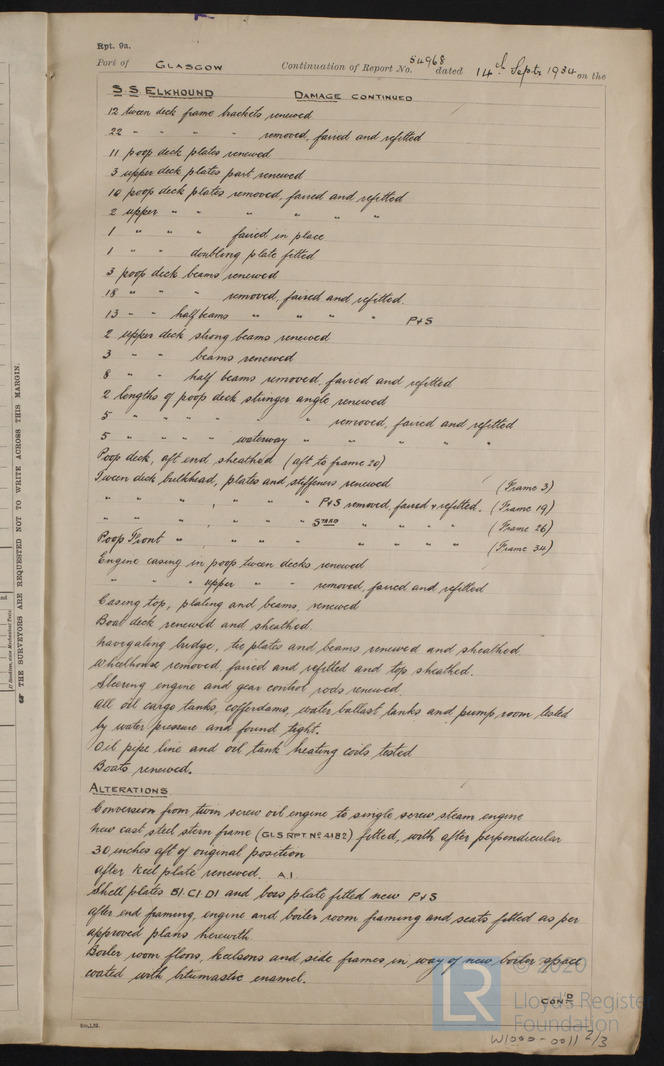 Rpt. 9a.
Port of GLASGOW Continuation of Report No. 54968 dated 14th Septr 1934 on the
S S ELKHOUND DAMAGE CONTINUED
12 tween deck frame brackets renewed
22 " " " " removed, faired and refitted
11 poop deck plates renewed
3 upper deck plates part renewed
10 poop deck plates removed, faired and refitted
2 upper " " " " " "
1 " " " faired in place
1 " " doubling plate fitted
3 poop deck beams renewed
18 " " " removed, faired and refitted.
13 " " half beams " " " " P & S
2 upper deck strong beams renewed
3 " " beams renewed
8 " " half beams removed, faired and refitted
2 lengths of poop deck stringer angle renewed
5 " " " " " " removed, faired and refitted
5 " " " " waterway " " " " "
Poop deck, aft end sheathed (aft to frame 20)
Tween deck bulkhead, plates and stiffeners renewed (Frame 3)
" " " , " " " P&S removed, faired & refitted. (Frame 19)
" " " , " " " STARD " " " " (Frame 26)
Poop Front " , " " " " " " " (Frame 34)
Engine casing in poop tween decks renewed
" " " upper " " removed, faired and refitted
Casing top, plating and beams, renewed
Boat deck renewed and sheathed.
Navigating bridge, tie plates and beams renewed and sheathed
Wheelhouse removed, faired and refitted and top sheathed.
Steering engine and gear control rods renewed.
All oil cargo tanks, cofferdams, water ballast tanks and pump room tested
by water pressure and found tight.
Oil pipe line and oil tank heating coils tested
Boats renewed.
ALTERATIONS
Conversion from twin screw oil engine to single screw steam engine
New cast steel stern frame (GLS RPT. No 4182) fitted, with after perpendicular
30 inches aft of original position
After keel plate renewed. A.1.
Shell plates B1. C1. D1 and boss plate fitted new P & S
After end framing, engine and boiler room framing and seats fitted as per
approved plans herewith.
Boiler room floors, keelsons and side frames in way of new boiler space
coated with bitumastic enamel.
CON'D
© 2020
LR Lloyd's Register
Foundation
W1000-0011 2/3
☞ THE SURVEYORS ARE REQUESTED NOT TO WRITE ACROSS THIS MARGIN.